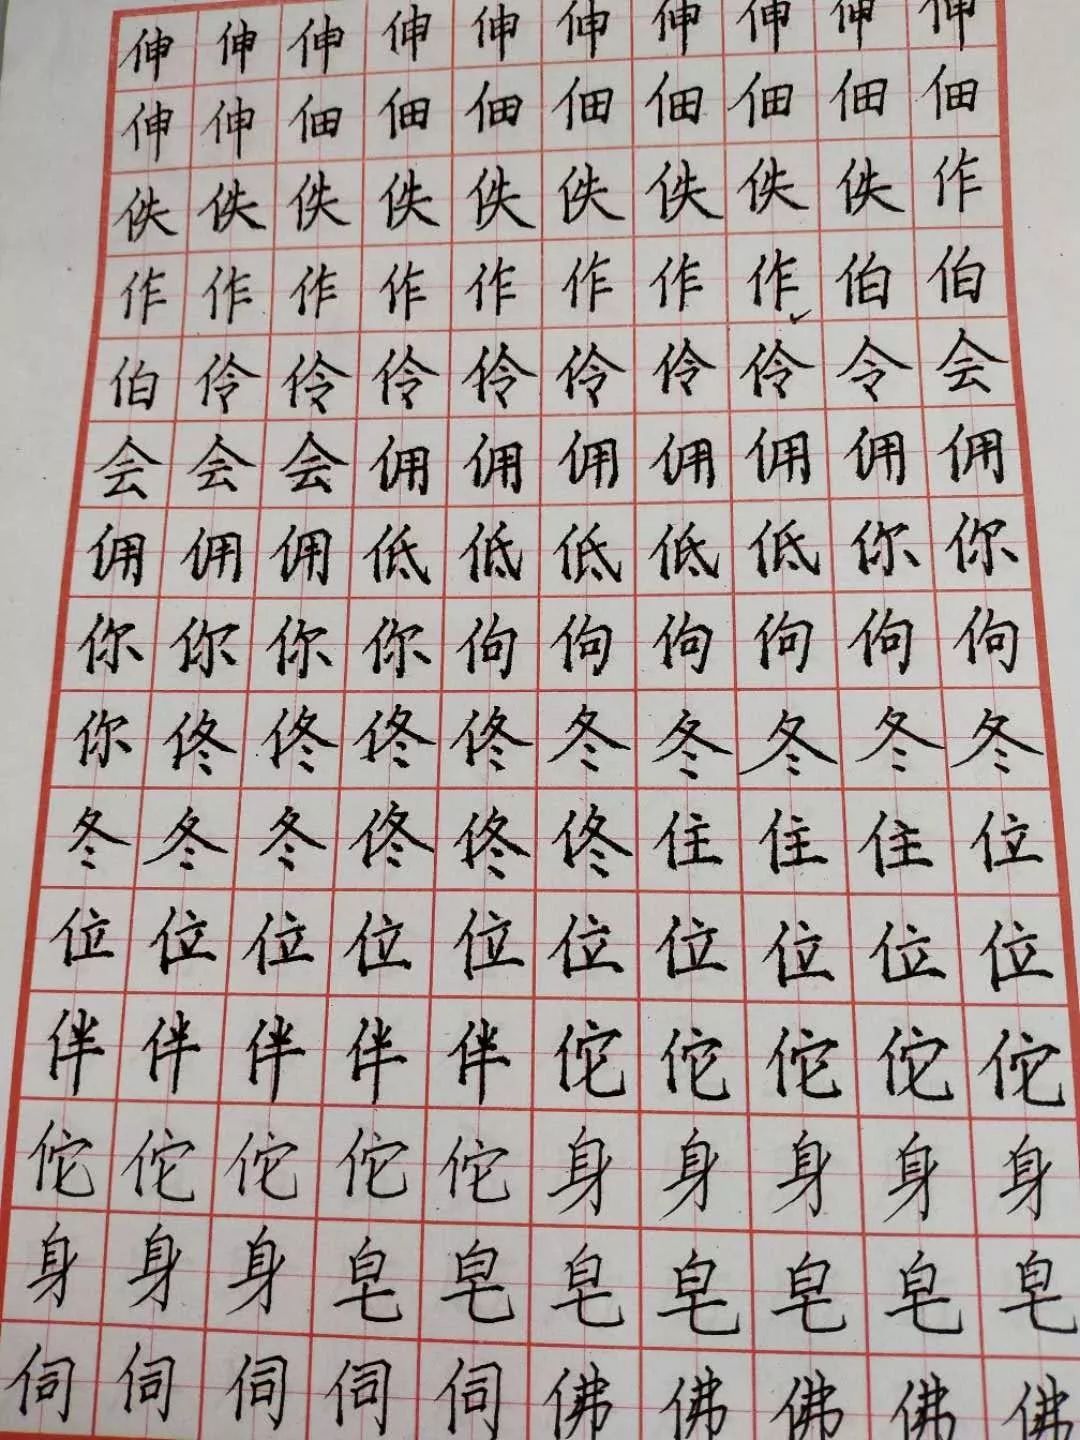 伸伸伸伸伸伸伸伸伸伸
伸伸佃佃佃佃佃佃佃佃
佚佚佚佚佚佚佚佚佚作
作作作作作作作作伯伯
伯伶伶伶伶伶伶伶令会
会会会佣佣佣佣佣佣佣
佣佣佣低低低低低你你
你你你你佝佝佝佝佝佝
你佟佟佟佟冬冬冬冬冬
冬冬冬佟佟佟住住住位
位位位位位位位位位位
伴伴伴伴伴佗佗佗佗佗
佗佗佗佗佗身身身身身
身身身皂皂皂皂皂皂皂
伺伺伺伺伺佛佛佛佛佛